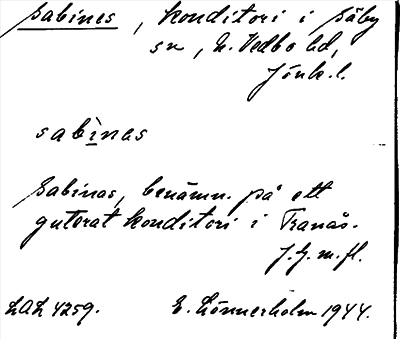 Sabines, konditori i Säby
sn, N. Vedbo hd,
Jönk. l.
sabìnas
Sabinas, benämn. på ett
guterat konditori i Tranås.
J. G. m. fl.
LAL 4259. E. Lönnerholm 1944.